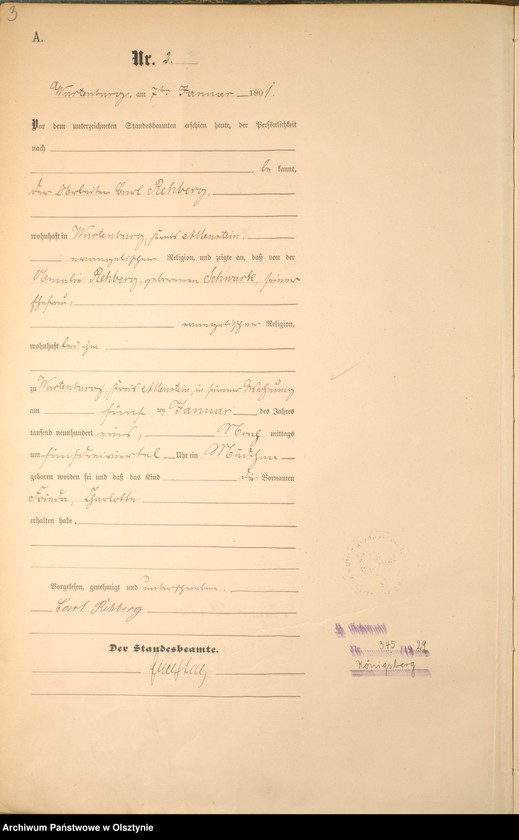 3
A.
Nr. 2.
Wartenburg, am 7ten Januar 1901.
Vor dem unterzeichneten Standesbeamten erschien heute, der Persönlichkeit
nach
be kannt,
der Arbeiter Carl Rehberg,
wohnhaft in Wartenburg, Kreis Allenstein,
evangelischer Religion, und zeigte an, daß von der
Amalie Rehberg, geborenen Schwark, seiner
Ehefrau,
evangelischer Religion,
wohnhaft bei ihm
zu Wartenburg, Kreis Allenstein, in seiner Wohnung
am fünf ten Januar des Jahres
tausend neunhundert eins, Nach mittags
um fünfdreiviertel Uhr ein Mädchen
geboren worden sei und daß das Kind die Vornamen
Frieda, Charlotte
erhalten habe,
Vorgelesen, genehmigt und unterschrieben.
Carl Rehberg
Der Standesbeamte.
Nr. 345/1929
Königsberg
Archiwum Państwowe w Olsztynie